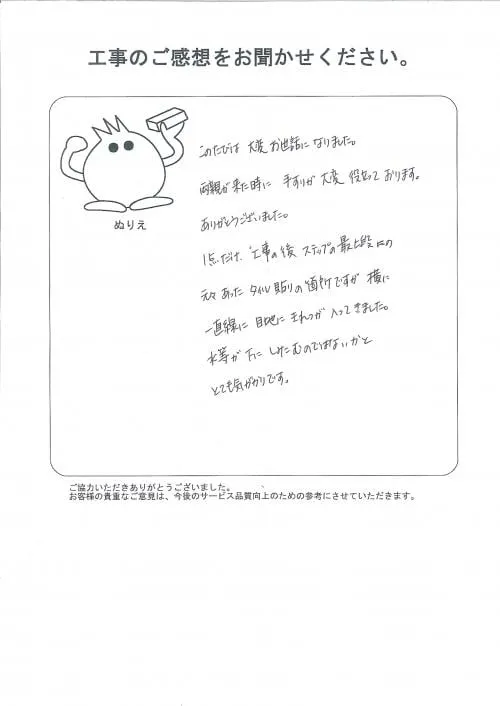 工事のご感想をお聞かせください。
ぬりえ
このたびは 大変 お世話に なりました。
両親が来た時に 手すりが 大変 役立って おります。
ありがとうございました。
1点だけ、工事の後 ステップの最上段の
元々 あった タイル貼りの箇所ですが 横に
一直線に 目地に きれつが 入ってきました。
水等が 下に しみこむのではないかと
とても気がかりです。
ご協力いただきありがとうございました。
お客様の貴重なご意見は、今後のサービス品質向上のための参考にさせていただきます。